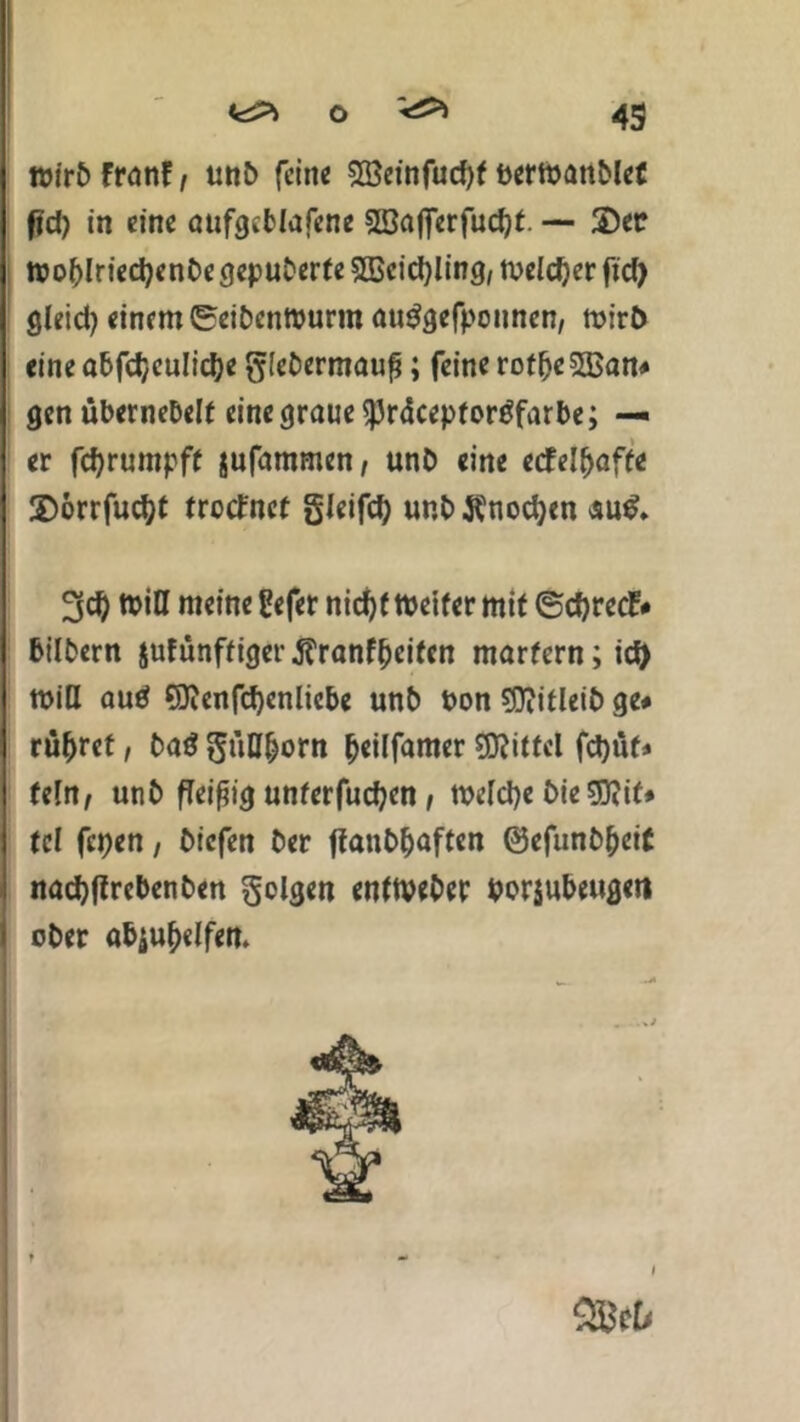 o 45
wird krank, und seine Weinsucht verwandlet
sich in eine aufgeblasene Wassersucht. — Der
wohlriechende gepuderte Weichling, welcher sich
gleich einem Seidenwurm ausgesponnen, wird
eine abscheuliche Fledermauß; seine rothe Wan-
gen übernebelt eine graue Präceptorsfarbe; —
er schrumpft zusammen, und eine eckelhafte
Dörrsucht trocknet Fleisch und Knochen aus.
Ich will meine Leser nicht weiter mit Schreck-
bildern zukünftiger Krankheiten martern; ich
will aus Menschenliebe und von Mitleid ge-
rühret, das Füllhorn heilsamer Mittel schüt-
teln, und fleißig untersuchen, welche die Mit-
tel seyen, diesen der standhaften Gesundheit
nachstrebenden Folgen entweder vorzubeugen
oder abzuhelfen.
Wel-